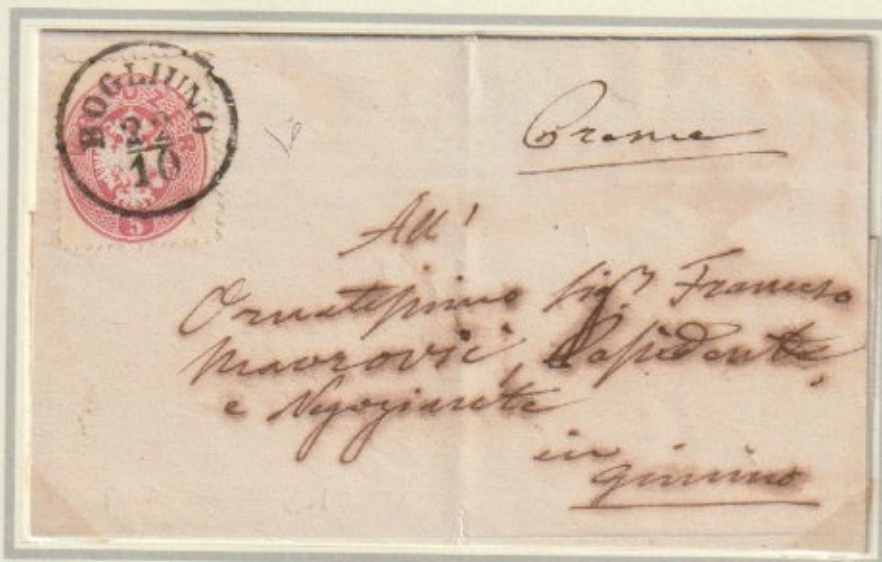 BOGLIUNO
22
10
KREUZER
5
All'
Ornatissimo Sigr. Francesco
Mavrović, Possidente
e Negoziante
in
Gimino